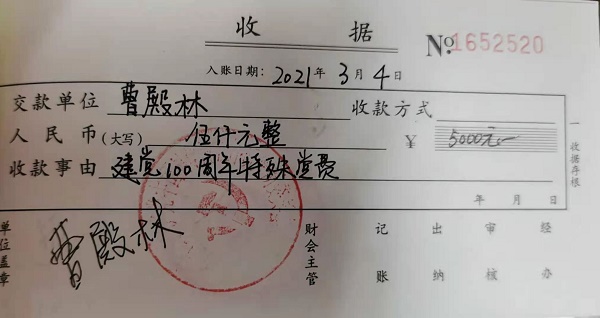 收 据
No 1652520
入账日期: 2021年 3月 4日
交款单位 曹殿林 收款方式
人民币(大写) 伍仟元整 ¥ 5000元
收款事由 建党100周年特殊党费
年 月 日
一 收据存根
单位盖章 曹殿林 财会主管 记账 出纳 审核 经办